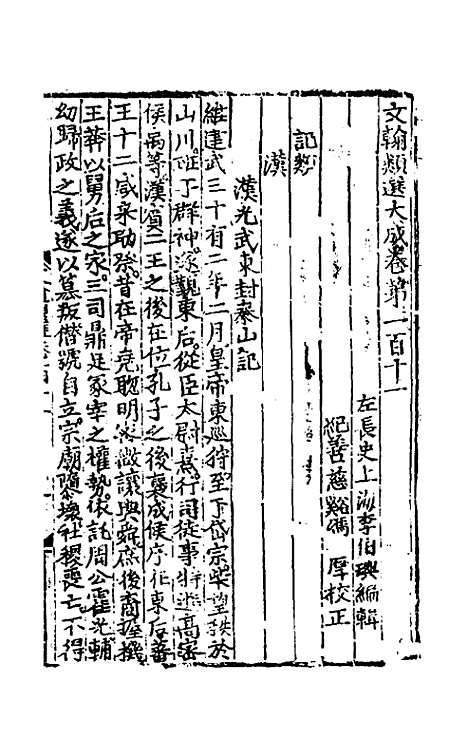 文翰類選大成卷第一百十一
左長史上海李伯璵編輯
紀善慈谿馮厚校正
記類
漢
漢光武東封泰山記
維建武三十有二年二月皇帝東巡狩至于岱宗柴望秩於
山川班于群神遂覲東后從臣太尉憙行司徒事特進高密
侯禹等漢賔二王之後在位孔子之後襃成侯序在東后蕃
王十二咸來助祭昔在帝堯聰明密微讓與舜庶後裔握機
王莽以舅后之家三司鼎足冡宰之權勢依託周公霍光輔
幼歸政之義遂以簒叛僭號自立宗廟隳壞社稷喪亡不得